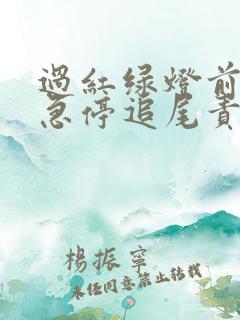 過紅绿燈前
急停追尾責
楊振寧
未经同意禁止转载